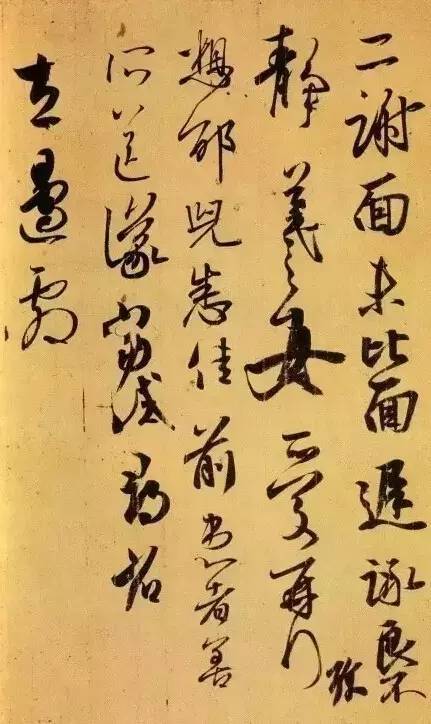 二謝面未比面遲詠良不
靜羲之女愛再拜
珍
想邰兒悉佳前患者善
所送議當試尋省
左邊劇